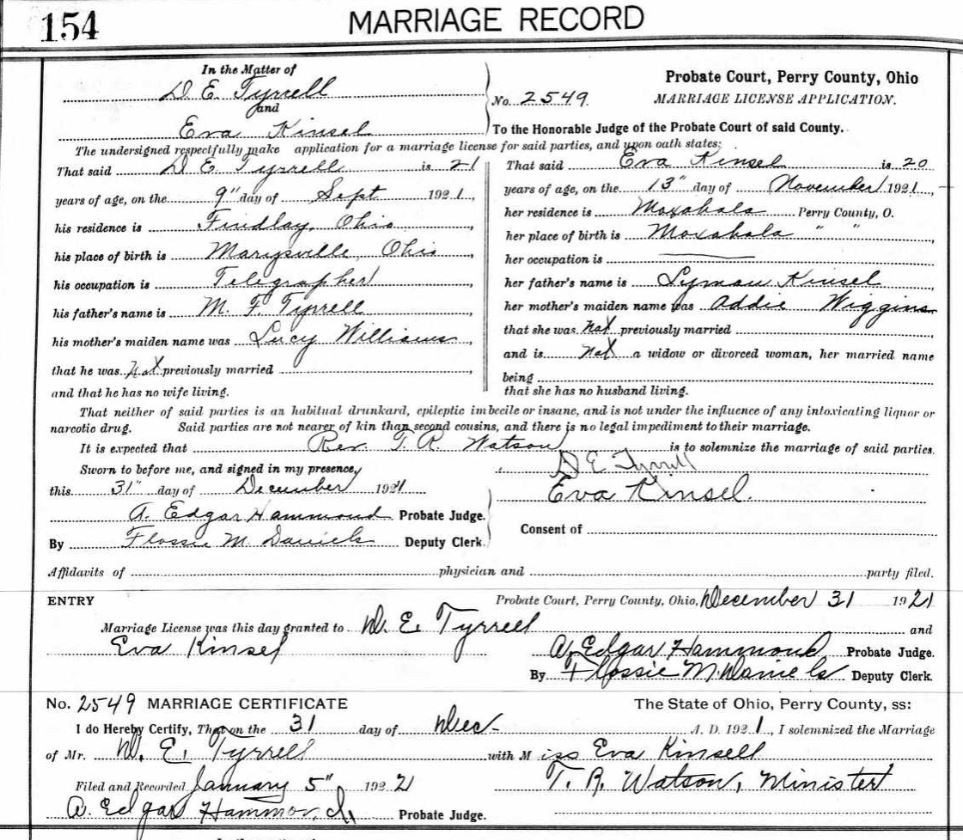 154
MARRIAGE RECORD
In the Matter of
D. E. Tyrrell
and
Eva Kinsel
No. 2549.
Probate Court, Perry County, Ohio
MARRIAGE LICENSE APPLICATION.
To the Honorable Judge of the Probate Court of said County.
The undersigned respectfully make application for a marriage license for said parties, and upon oath states:
That said D. E. Tyrrell is 21
years of age, on the 9" day of Sept 1921.
his residence is Findlay, Ohio
his place of birth is Marysville, Ohio
his occupation is Telegrapher
his father's name is M. F. Tyrrell
his mother's maiden name was Lucy Williams
that he was not previously married
and that he has no wife living.
That said Eva Kinsel is 20
years of age, on the 13" day of November 1921.
her residence is Moxahala Perry County, O.
her place of birth is Moxahala " "
her occupation is
her father's name is Lyman Kinsel
her mother's maiden name was Addie Wiggins
that she was not previously married
and is not a widow or divorced woman, her married name
being
that she has no husband living.
That neither of said parties is an habitual drunkard, epileptic imbecile or insane, and is not under the influence of any intoxicating liquor or
narcotic drug. Said parties are not nearer of kin than second cousins, and there is no legal impediment to their marriage.
It is expected that Rev. T. R. Watson is to solemnize the marriage of said parties.
Sworn to before me, and signed in my presence,
this 31" day of December 1921
A. Edgar Hammond Probate Judge.
By Flossie M. Daniels Deputy Clerk.
D E Tyrrell
Eva Kinsel.
Consent of
Affidavits of physician and party filed.
ENTRY
Probate Court, Perry County, Ohio, December 31 1921
Marriage License was this day granted to D. E. Tyrrell and
Eva Kinsel
A. Edgar Hammond Probate Judge.
By Flossie M. Daniels Deputy Clerk.
No. 2549 MARRIAGE CERTIFICATE
The State of Ohio, Perry County, ss:
I do Hereby Certify, That on the 31 day of Dec. A. D. 1921., I solemnized the Marriage
of Mr. D. E. Tyrrell with Miss Eva Kinsell
Filed and Recorded January 5" 1922
T. R. Watson, Minister
A. Edgar Hammond, Probate Judge.